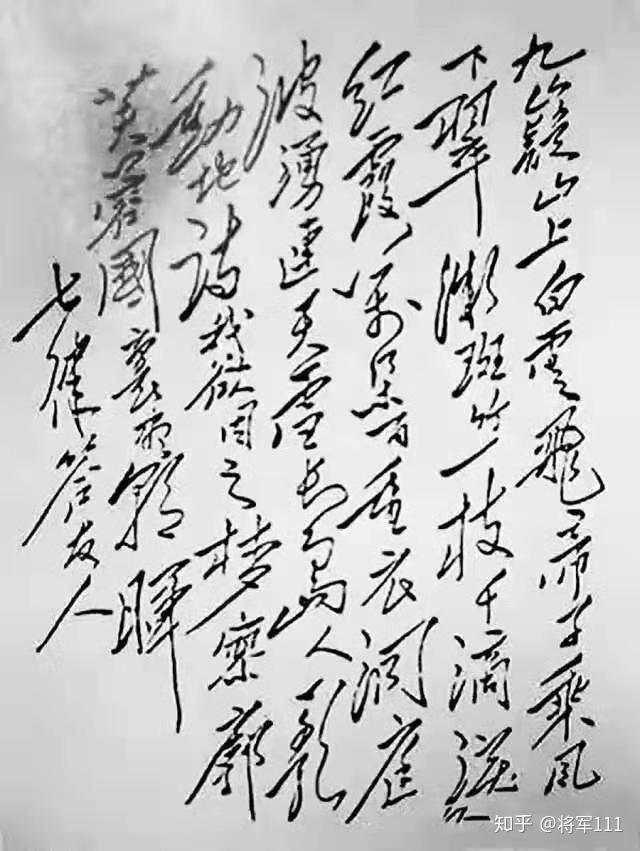 九嶷山上白雲飛帝子乘風
下翠微斑竹一枝千滴淚
紅霞萬朵百重衣洞庭
波湧連天雪長島人歌
動地詩我欲因之夢寥廓
芙蓉國裏盡朝暉
七律答友人
知乎 @将军111